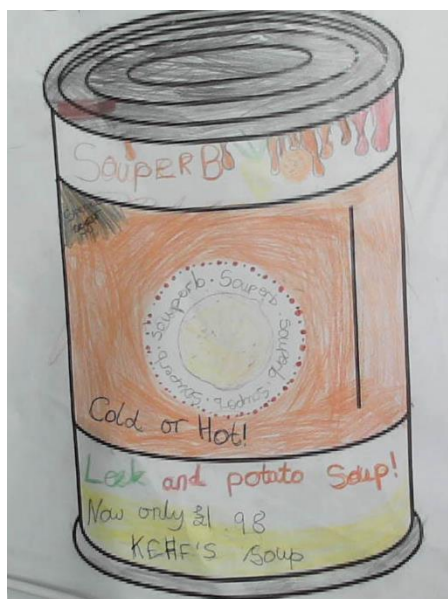 SOUPERB
Souperb. Souperb. Souperb. Souperb. Souperb.
Cold or Hot!
Leek and potato Soup!
Now only £1.98
Soup